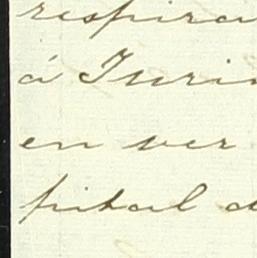 respira
á Turin
en ver
pital d